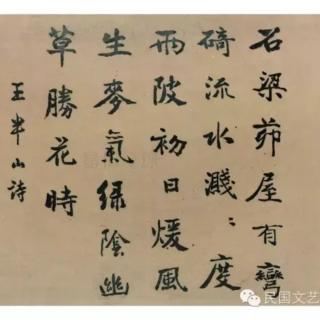 石梁茆屋有彎
碕流水濺〻度
兩陂初日煖風
生麥氣綠陰幽
草勝花時
王半山詩
民国文艺